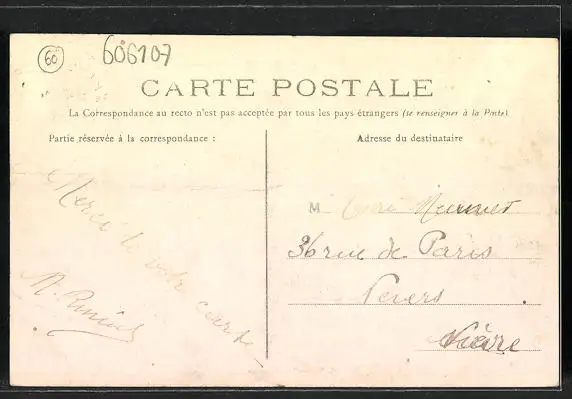 60
606107
CARTE POSTALE
La Correspondance au recto n'est pas acceptée par tous les pays étrangers (se renseigner à la Poste)
Partie réservée à la correspondance :
Adresse du destinataire
Merci de votre carte
M.
M
36 rue de Paris
Nevers
Nièvre